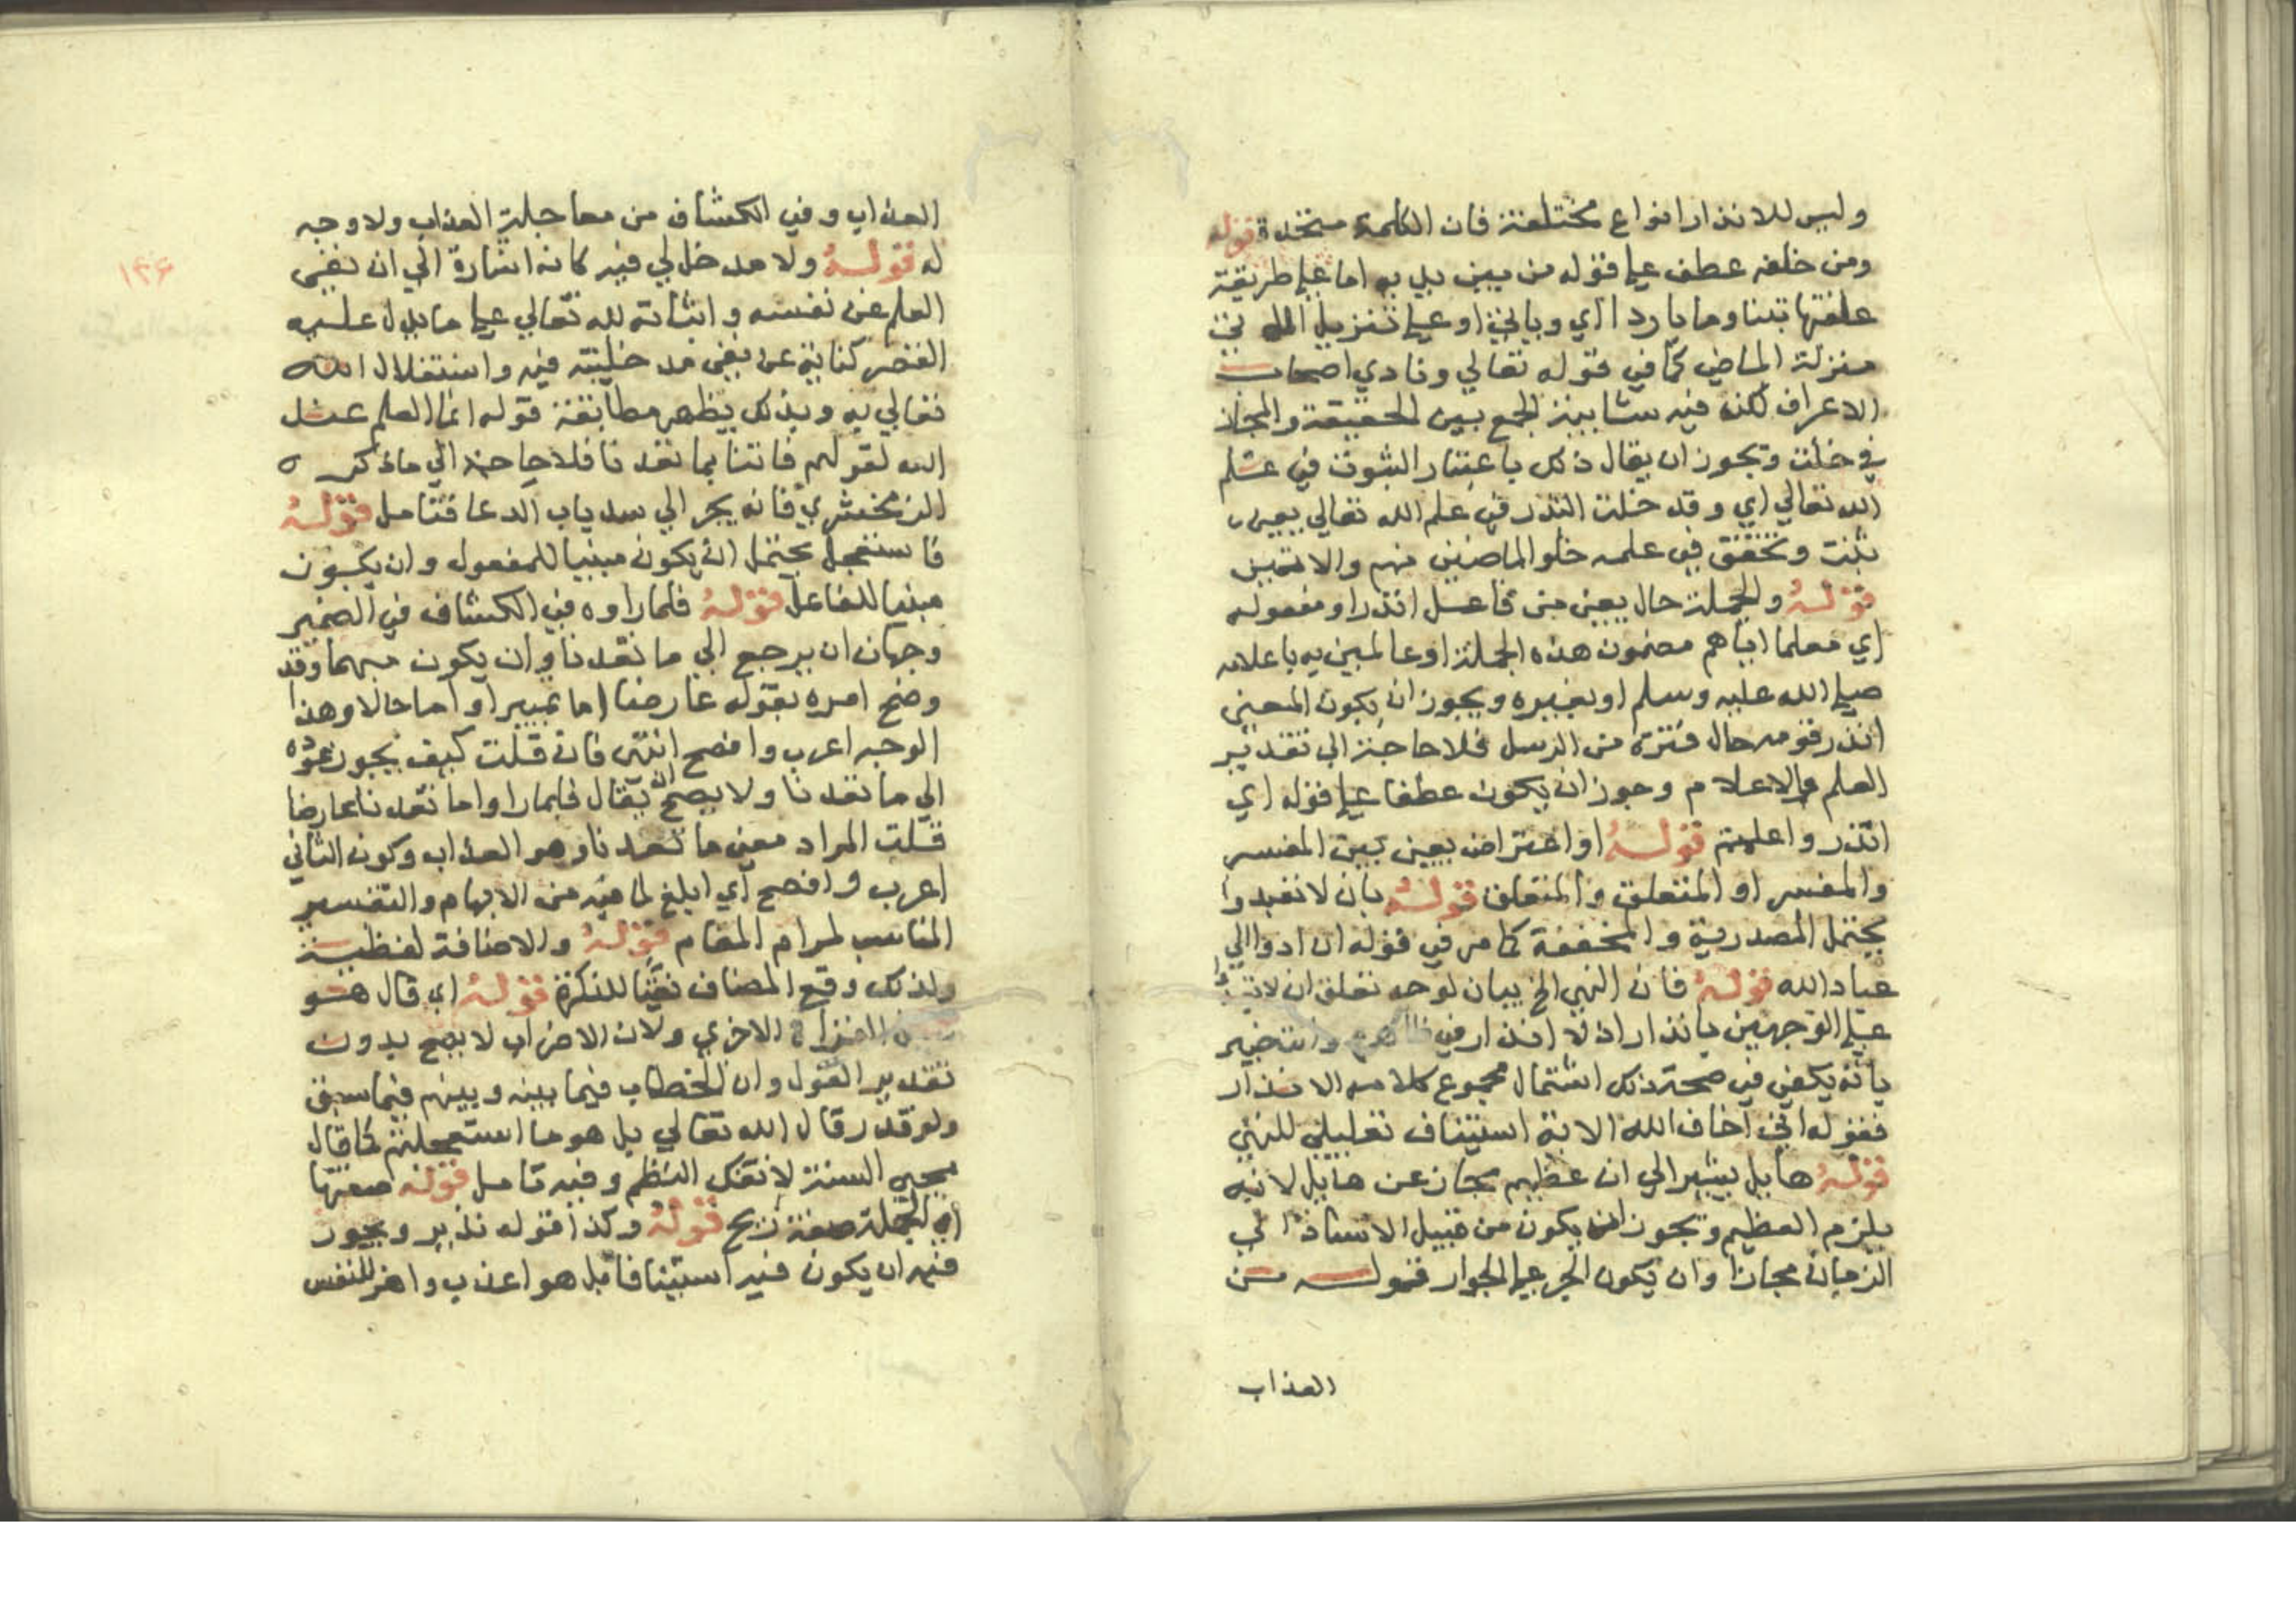 وليس للانذار انواع مختلفة فان الكلمة متحدة قوله
ومن خلفه عطف على قوله من بين يديه اما على طريقة
علفتها تبنا وما باردا اي وياتي او على تنزيل الاتي
منزلة الماضي كما في قوله تعالي ونادي اصحاب
الاعراف لكن فيه شايبة الجمع بين الحقيقة والمجاز
في خلت ويجوز ان يقال ذلك باعتبار الثبوت في علم
الله تعالي اي وقد خلت النذر في علم الله تعالي يعني
ثبت وتحقق في علمه خلو الماضين منهم والاتين
قوله والجملة حال يعني من فاعل انذر او مفعوله
اي معلما اياهم مضمون هذه الجملة او عالمين به باعلامه
صلي الله عليه وسلم او بغيره ويجوز ان يكون المعني
انذر قومه حال فترة من الرسل فلا حاجة الي تقدير
العلم والاعلام وجوز ان يكون عطفا على قوله اي
انذر واعلمهم قوله او اعتراض يعني بين المفسر
والمفسر او المتعلق والمتعلق قوله بان لا تعبدوا
يحتمل المصدرية والمخففة كما مر في قوله ان ادوا الي
عباد الله قوله فان النهي الخ بيان لوجه تعلق ان لا
على الوجهين بانذار اذ لا انذار في ظاهره وانت خبير
بانه يكفي في صحة ذلك اشتمال مجموع كلامه الانذار
فقوله اني اخاف الله الاية استيناف تعليلي للنهي
قوله هايل يشير الي ان عظيم مجاز عن هايل لانه
يلزم العظيم ويجوز ان يكون من قبيل الاسناد الي
الزمان مجازا وان يكون الجر على الجوار قوله من
العذاب
العذاب وفي الكشاف من معاجلة العذاب ولا وجه
له قوله ولا مدخل لي فيه كانه اشارة الي ان نفي
العلم عن نفسه واثباته لله تعالي على ما يدل عليه
القصر كناية عن نفي مدخليته فيه واستقلال الله
تعالي به وبذلك يظهر مطابقة قوله انما العلم عند
الله لقولهم فاتنا بما تعدنا فلا حاجة الي ما ذكره
الزمخشري فانه يجر الي سد باب الدعا فتامل قوله
فاستعجل يحتمل ان يكون مبنيا للمفعول وان يكون
مبنيا للفاعل قوله فلما راوه في الكشاف في الضمير
وجهان ان يرجع الي ما تعدنا وان يكون مبهما وقد
وضح امره بقوله عارضا اما تمييزا واما حالا وهذا
الوجه اعرب وافصح انتهى فان قلت كيف يجوز عوده
الي ما تعدنا ولا يصح ان يقال فلما راوا ما تعدنا عارضا
قلت المراد معني ما تعدنا وهو العذاب وكون الثاني
اعرب وافصح اي ابلغ لما فيه من الابهام والتفسير
المناسب لمرام المقام قوله والاضافة لفظية
ولذلك وقع المضاف نعتا للنكرة قوله اي قال هو
القراة الاخري ولان الاضراب لا يصح بدون
تقدير القول وان الخطاب فيما بينه وبينهم فيما سبق
ولو قدر قال الله تعالي بل هو ما استعجلتم كما قال
محيي السنة لانفك النظم وفيه تامل قوله صفتها
اي الجملة صفة ريح قوله وكذا قوله تدمر ويجوز
فيه ان يكون فيه استينافا بل هو اعذب واهز للنفس
١٢٦